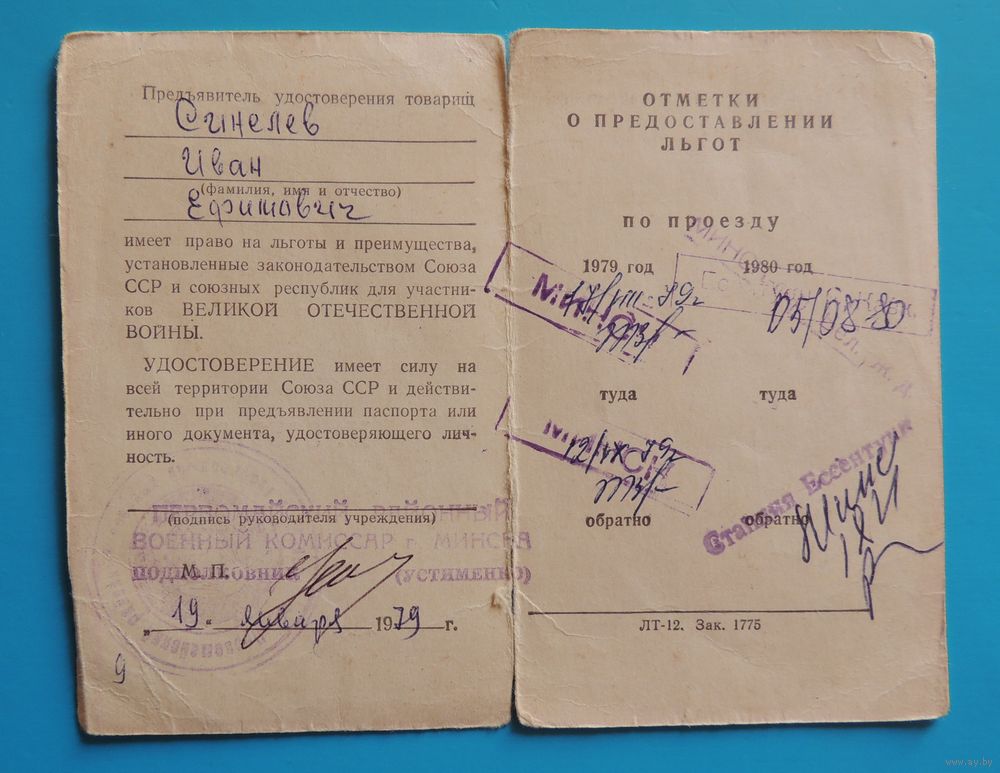 Предъявитель удостоверения товарищ
Синелев
Иван
(фамилия, имя и отчество)
Ефимович
имеет право на льготы и преимущества,
установленные законодательством Союза
ССР и союзных республик для участни-
ков ВЕЛИКОЙ ОТЕЧЕСТВЕННОЙ
ВОЙНЫ.
УДОСТОВЕРЕНИЕ имеет силу на
всей территории Союза ССР и действи-
тельно при предъявлении паспорта или
иного документа, удостоверяющего лич-
ность.
ПЕРВОМАЙСКИЙ РАЙОННЫЙ
(подпись руководителя учреждения)
ВОЕННЫЙ КОМИССАР г. МИНСКА
М. П.
ПОДПОЛКОВНИК (УСТИМЕНКО)
„19" января 1979 г.
9
ОТМЕТКИ
О ПРЕДОСТАВЛЕНИИ
ЛЬГОТ
по проезду
1979 год 1980 год
17/VIII-79г
05/08 80
туда туда
12/IX 79г
Станция Ессентуки
обратно обратно
ЛТ-12. Зак. 1775
www.ay.by